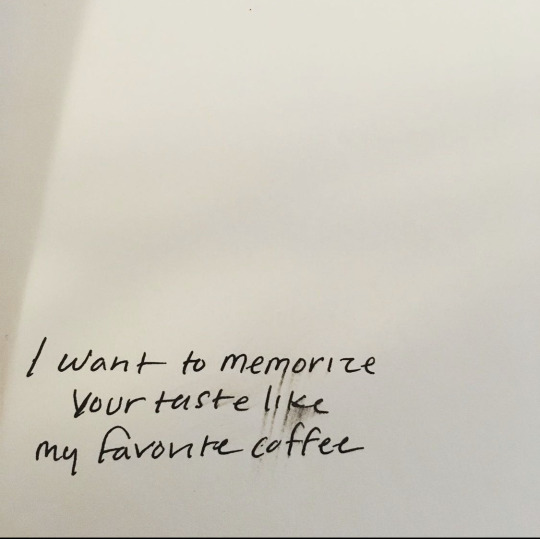 I want to memorize
Your taste like
my favorite coffee